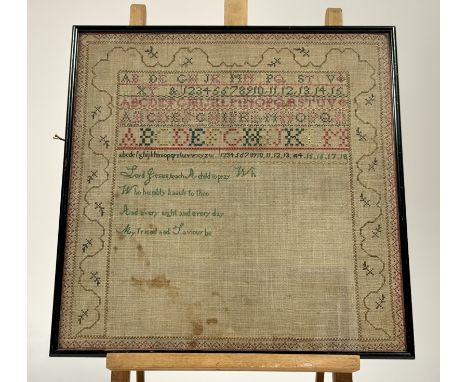 AB DE GH JK MN PQ ST UV
XY & 1 2 3 4 5 6 7 8 9 10 11 12 13 14 15
ABCDEFGHIJKLMNOPQRSTUV
ABCDEFGHIJKLMNOPQ
AB DE GH JK M
abcdefghijklmnopqrstuvwxyz 1 2 3 4 5 6 7 8 9 10 11 12 13 14 15 16 17 18
Lord Jesus teach A child to pray Wh
Who humbly kneels to thee
And every night and every day
My friend and Saviour be